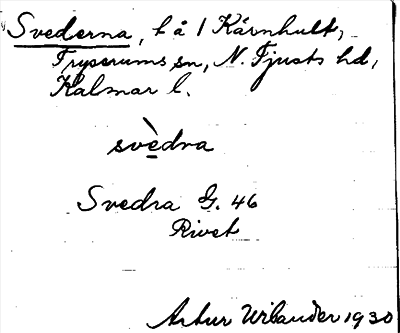 Svederna, t å 1 Kärnhult,
Tryserums sn, N. Tjusts hd,
Kalmar l.
svèdra
Svedra G. 46
Rivet
Artur Urbander 1930